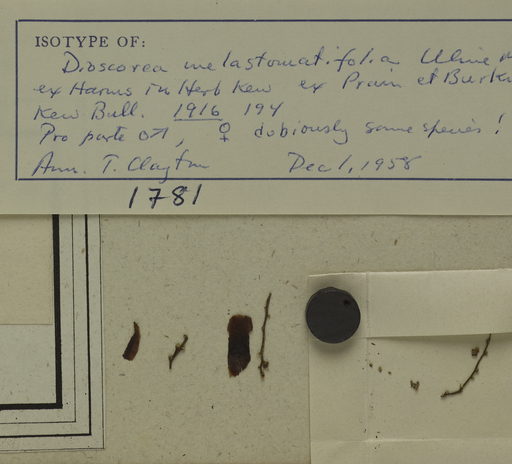 ISOTYPE OF:
Dioscorea melastomatifolia Uline
ex Harms in Herb Kew ex Prain et Burk
Kew Bull. 1916 194
Pro parte ♂, ♀ dubiously same species!
Ann. T. Clayton Dec 1, 1958
1781